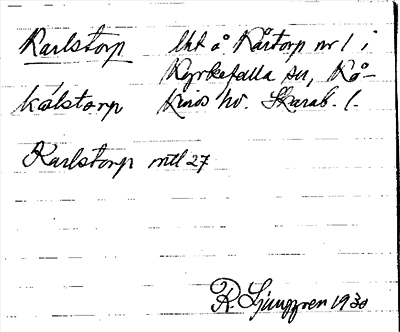 Karlstorp lht å Kårtorp nr 1 i
Kyrkefalla sn, Kå-
kálstorp kinds hd. Skarab. l.
Karlstorp mtl 27
R. Ljunggren 1930